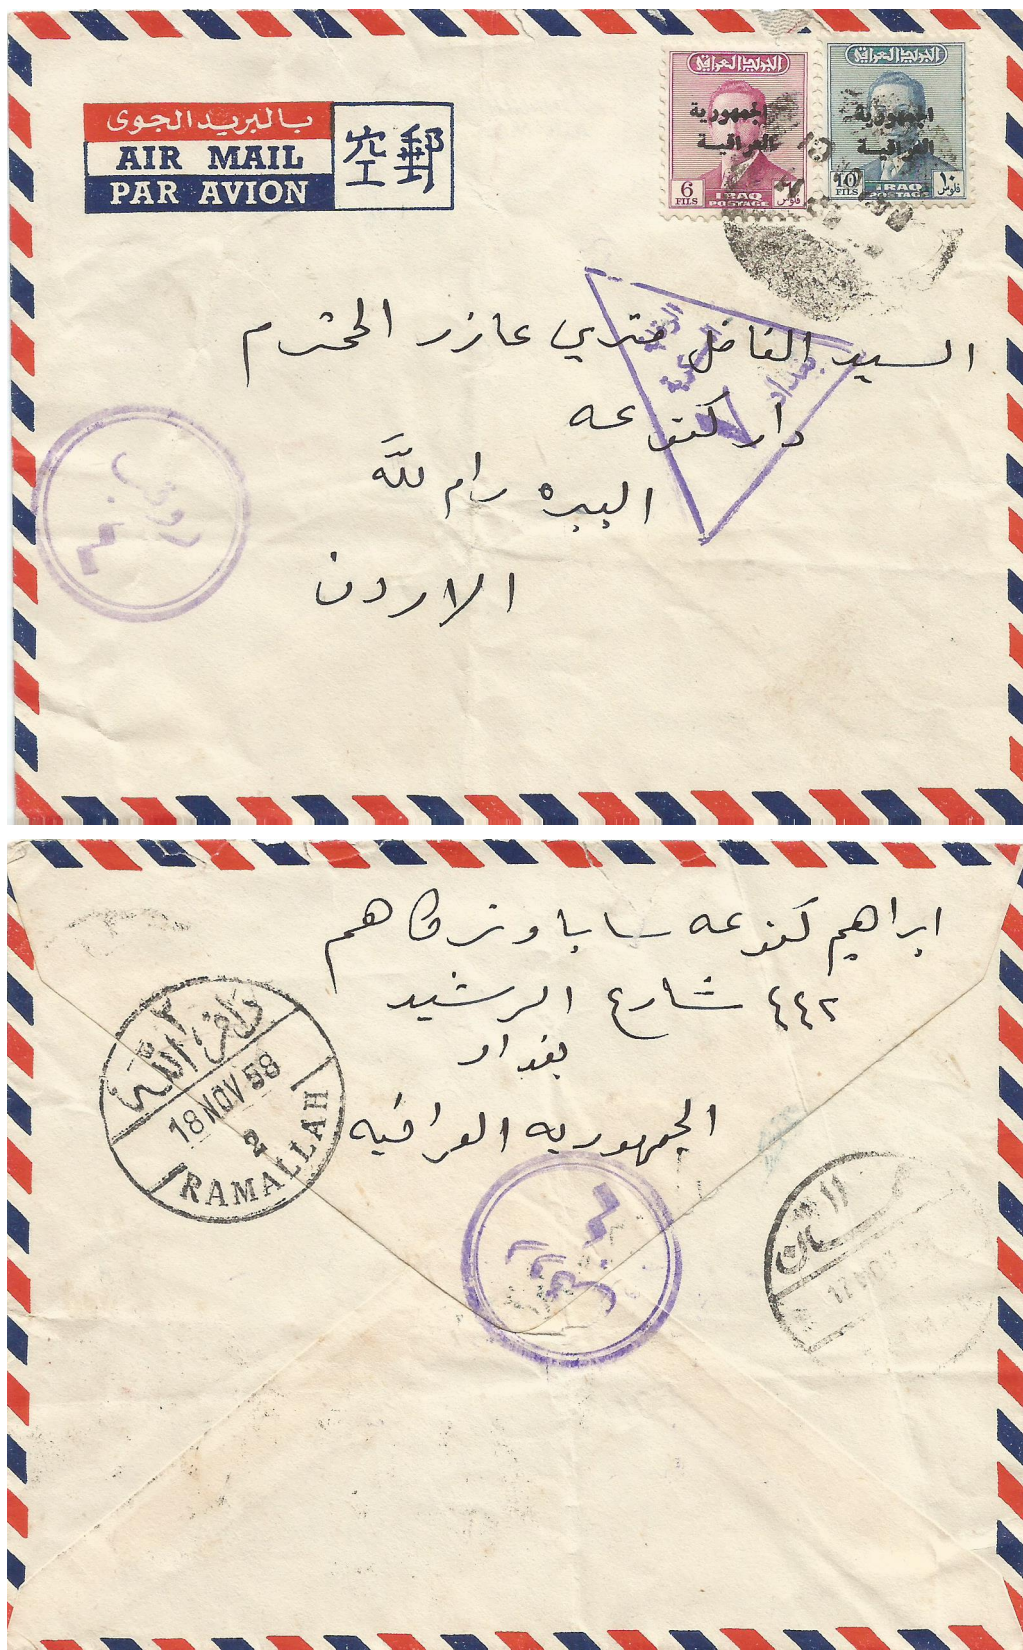 بالبريد الجوى
AIR MAIL
PAR AVION
空郵
البريد العراقي
الجمهورية
العراقية
6
FILS
IRAQ
POSTAGE
فلوس
البريد العراقي
الجمهورية
العراقية
10
FILS
IRAQ
POSTAGE
١٠
فلوس
بغداد
السيد الفاضل متري عازر المحترم
دار كنوعه
البيره رام لله
الاردن
ابراهيم كنوعه سابا وشركاهم
٤٤٢ شارع الرشيد
بغداد
الجمهوريه العراقيه
٢
رام الله
18 NOV 58
2
RAMALLAH
17 NOV